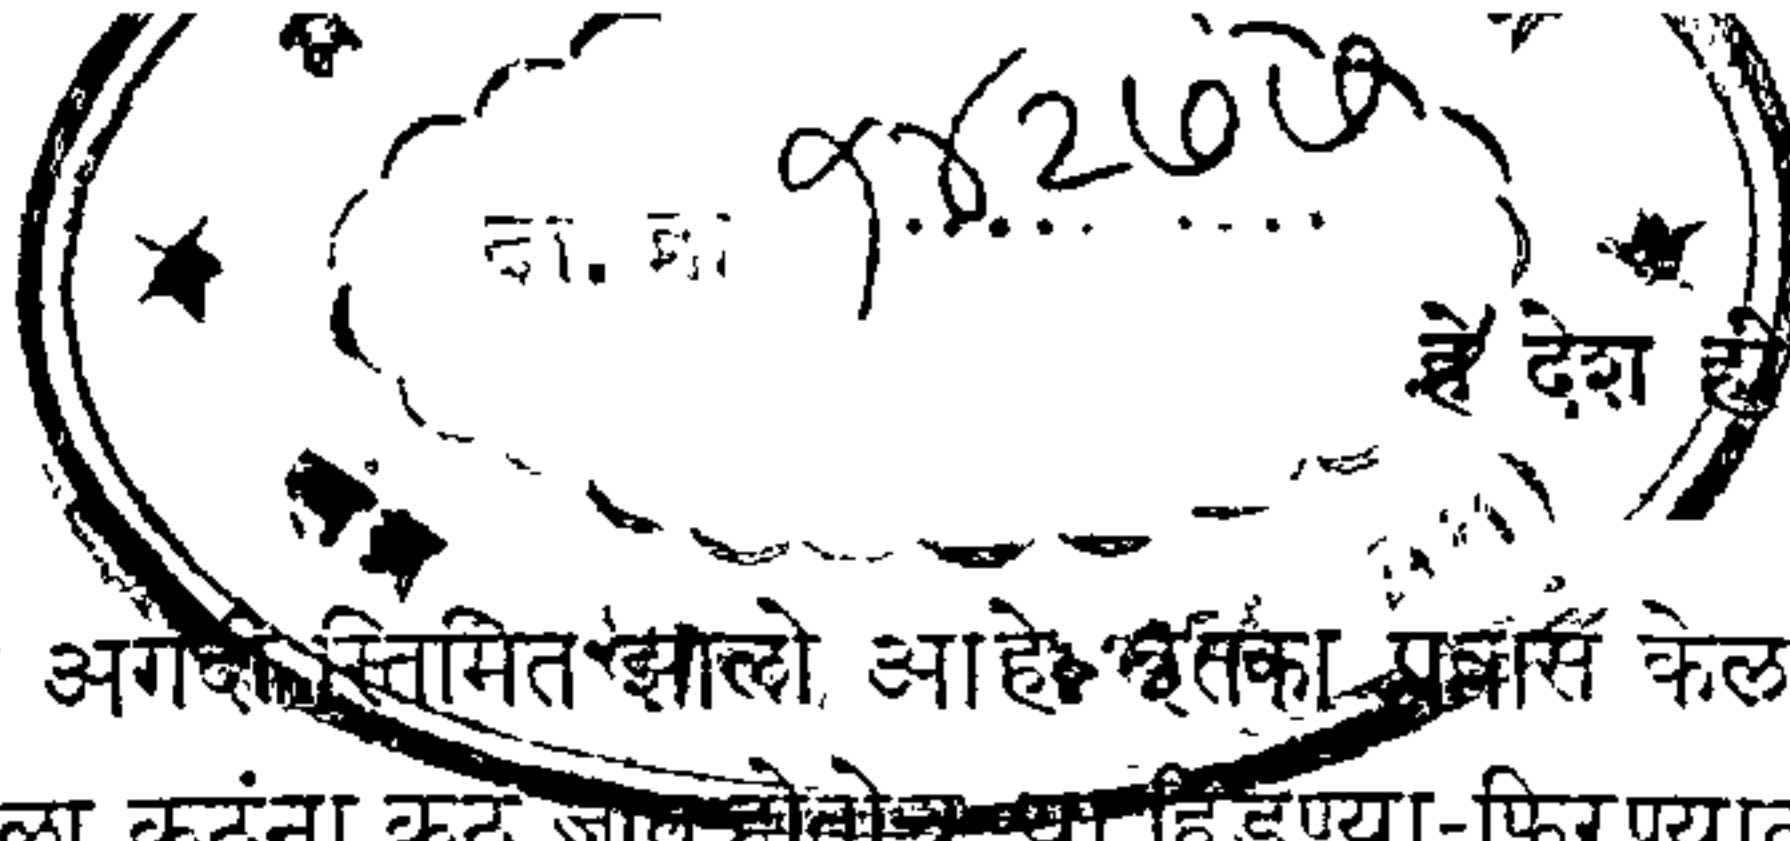 दा. क्र १४२७७
हे देश हो
अगदी स्तिमित झालो आहे. इतका प्रवास केल
ळा कुठंना कुठं हिंडण्या-फिरण्यात